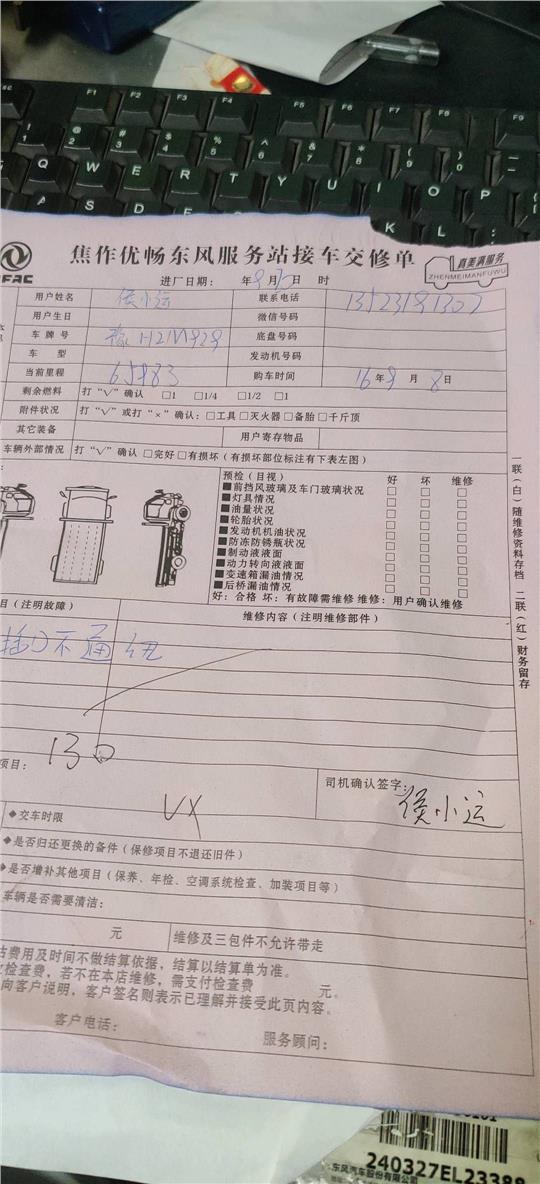 F1 F2 F3 F4 F5 F6 F7 F8 F9
Q W E R T Y U I O P
S D K L
焦作优畅东风服务站接车交修单
真美满服务
ZHENMEIMANFUWU
进厂日期: 年 9 月 日 时
用户姓名 侯小运 联系电话
用户生日 微信号码
车牌号 豫H2M929 底盘号码
车 型 发动机号码
当前里程 65983 购车时间 16年9月8日
剩余燃料 打“√”确认 □1 □1/4 □1/2 □1
附件状况 打“√”或打“×”确认: □工具 □灭火器 □备胎 □千斤顶
其它装备 用户寄存物品
车辆外部情况 打“√”确认 □完好 □有损坏 (有损坏部位标注有下表左图)
预检 (目视) 好 坏 维修
■前挡风玻璃及车门玻璃状况 □ □ □
■灯具情况 □ □ □
■油量状况 □ □ □
■轮胎状况 □ □ □
■发动机机油状况 □ □ □
■防冻防锈瓶状况 □ □ □
■制动液液面 □ □ □
■动力转向液液面 □ □ □
■变速箱漏油情况 □ □ □
■后桥漏油情况 □ □ □
好: 合格 坏: 有故障需维修 维修: 用户确认维修
目 (注明故障) 维修内容 (注明维修部件)
不通
130
项目:
司机确认签字:
侯小运
◆交车时限 VX
◆是否归还更换的备件 (保修项目不退还旧件)
◆是否增补其他项目 (保养、年检、空调系统检查、加装项目等)
车辆是否需要清洁:
元 维修及三包件不允许带走
估费用及时间不做结算依据, 结算以结算单为准。
检查费, 若不在本店维修, 需支付检查费 元。
向客户说明, 客户签名则表示已理解并接受此页内容。
客户电话: 服务顾问:
一联 (白) 随维修资料存档 二联 (红) 财务留存
240327EL23388
东风汽车股份有限公司